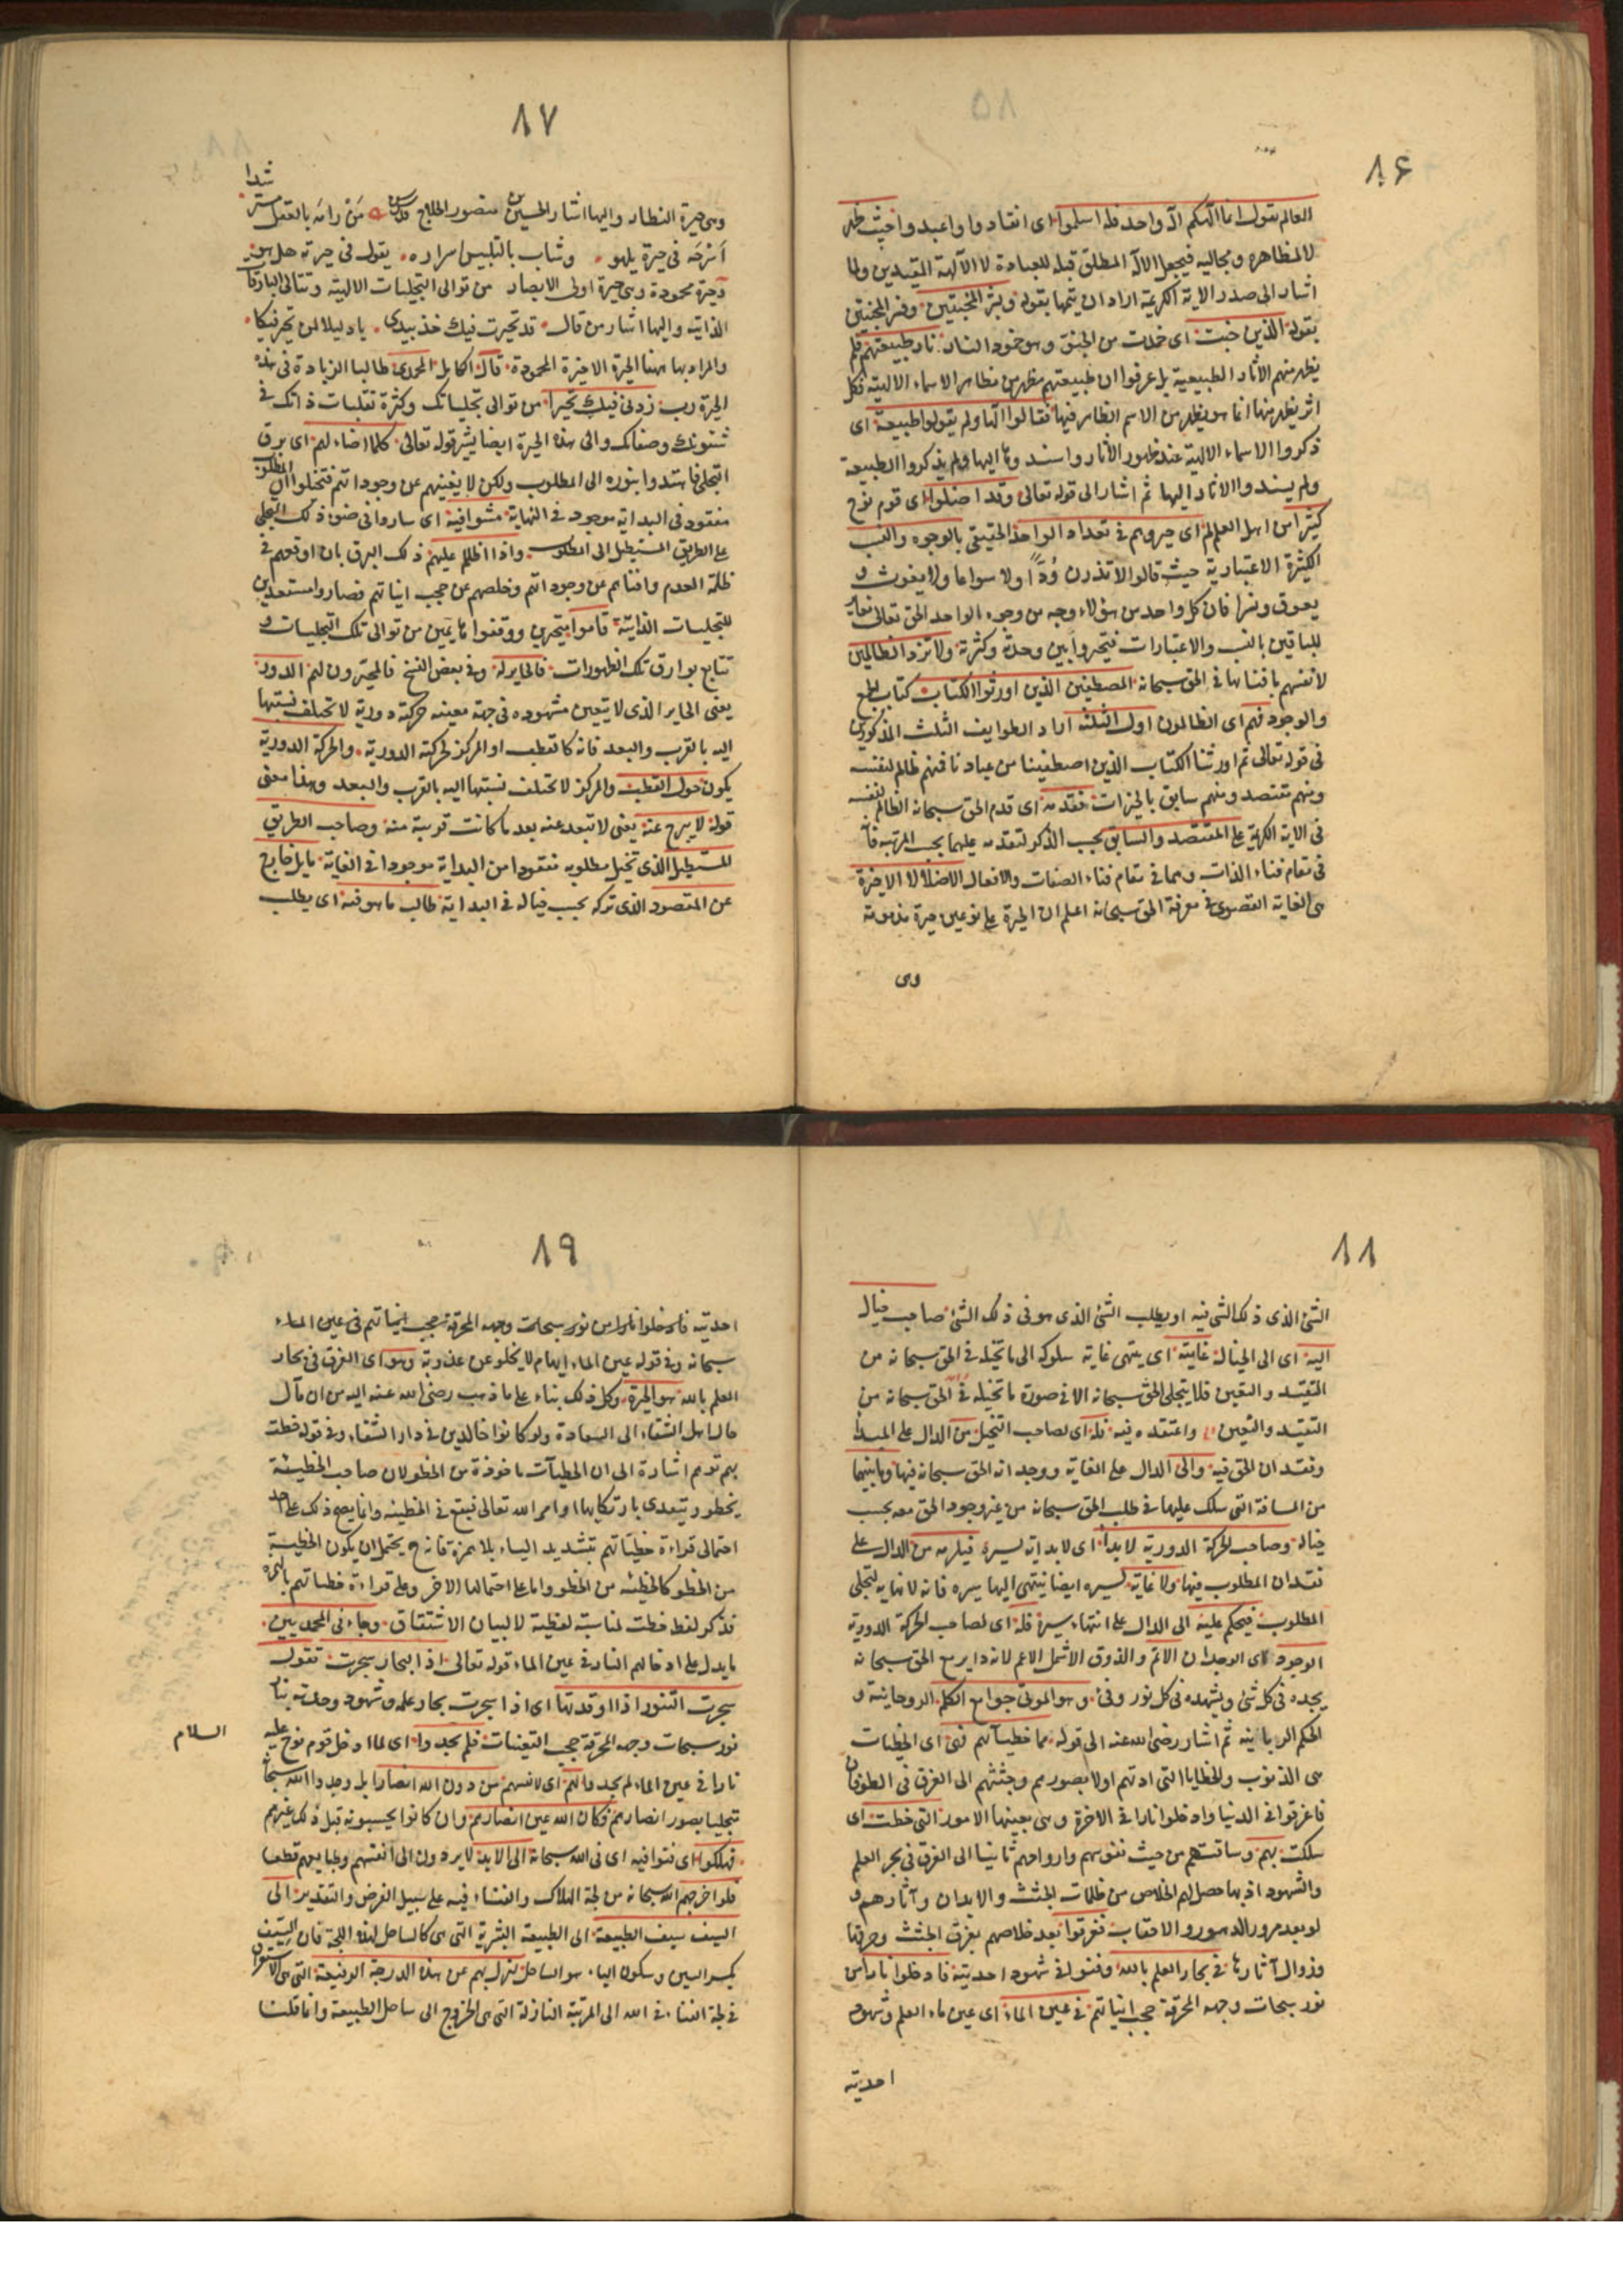 ٨۶
العالم يقول انما الهكم اله واحد فله اسلموا اى انقادوا واعبدوا حيث ظهر
لا لمظاهره ومجاليه فيجعل الاله المطلق قبلة للعبادة لا الالهة المقيدين ولما
اشار الى صدر الاية الكريمة اراد ان يتمها بقوله وبشر المخبتين وفسر المخبتين
بقوله الذين خبت اى خمدت من الخبو وهو خمود النار نار طبيعتهم فلم
يظهر منهم الاثار الطبيعية بل عرفوا ان طبيعتهم مظهر من مظاهر الاسماء الالهية فكل
اثر يظهر منها انما هو يظهر من الاسم الظاهر فيها فقالوا الها ولم يقولوا طبيعة اى
ذكروا الاسماء الالهية عند ظهور الاثار واسندوها اليها ولم يذكروا الطبيعة
ولم يسندوا الاثار اليها ثم اشار الى قوله تعالى وقد اضلوا اى قوم نوح
كثيرا من اهل العالم اى حيروهم فى تعداد الواحد الحقيقى بالوجوه والنسب
الكثيرة الاعتبارية حيث قالوا لا تذرن ودًّا ولا سواعا ولا يغوث و
يعوق ونسرا فان كل واحد من هؤلاء وجه من وجوه الواحد الحق تعالى مغاير
للباقين بالنسب والاعتبارات فتحيروا بين وحدة وكثرة ولا تزد الظالمين
لانفسهم بافنائها فى الحق سبحانه المصطفين الذين اورثوا الكتاب كتاب الجمع
والوجود فهم اى الظالمون اول الثلثة اراد الطوايف الثلث المذكورين
فى قوله تعالى ثم اورثنا الكتاب الذين اصطفينا من عبادنا فمنهم ظالم لنفسه
ومنهم مقتصد ومنهم سابق بالخيرات فقدمه اى قدم الحق سبحانه الظالم لنفسه
فى الاية الكريمة على المقتصد والسابق بحسب الذكر لتقدمه عليهما بحسب المرتبة فانه
فى مقام فناء الذات وهما فى مقام فناء الصفات والافعال الا ضلالا الا حيرة
هى الغاية القصوى فى معرفة الحق سبحانه اعلم ان الحيرة على نوعين حيرة مذمومة
وهى
٨٧
وهى حيرة النظار واليها اشار الحسين بن منصور الحلاج قدس سره مَنْ رامَه بالعقل مسترشدا
اَسْرَحَه فى حيرة يلهو وشاب بالتلبيس اسراره يقول فى حيرته هل هو
وحيرة محمودة وهى حيرة اولى الابصار من توالى التجليات الالهية وتتالى البارقات
الذاتية واليها اشار من قال قد تحيرت فيك خذ بيدى يا دليلا لمن تحير فيكا
والمراد بها ههنا الحيرة الاخيرة المحمودة قال الكامل المحمدى طالبا الزيادة فى هذه
الحيرة رب زدنى فيك تحيرا من توالى تجلياتك وكثرة تقلبات ذاتك فى
شئونك وصفاتك والى هذه الحيرة ايضا يشير قوله تعالى كلما اضاء لهم اى برق
التجلى فاهتدوا بنوره الى المطلوب ولكن لا يغنيهم عن وجوداتهم فتخيلوا ان المطلوب
مفقود فى البداية موجود فى النهاية مشوا فيه اى ساروا فى ضوء ذلك التجلى
على الطريق المستطيل الى المطلوب واذا اظلم عليهم ذلك البرق بان اوقعهم فى
ظلمة العدم وافناهم عن وجوداتهم وخلصهم عن حجب انياتهم فصاروا مستعدين
للتجليات الذاتية قاموا متحيرين ووقفوا هائمين من توالى تلك التجليات و
تتابع بوارق تلك الظهورات فالحاير له وفى بعض النسخ فالمحيرون لهم الدور
يعنى الحاير الذى لا يتعين مشهوده فى جهة معينه حركته دورية لا تختلف نسبتها
اليه بالقرب والبعد فانه كالقطب او المركز لحركته الدورية والحركة الدورية
يكون حول القطب والمركز لا تختلف نسبتها اليه بالقرب والبعد وهذا معنى
قوله لا يبرح عنه يعنى لا تبعد عنه بعد ما كانت قريبة منه وصاحب الطريق
المستطيل الذى تخيل مطلوبه مفقودا من البداية موجودا فى الغاية مايل خارج
عن المقصود الذى تركه بحسب خياله فى البداية طالب ما هو فيه اى يطلب
٨٨
الشئ الذى ذلك الشئ فيه او يطلب الشئ الذى هو فى ذلك الشئ صاحب خيال
اليه اى الى الخيال غايته اى ينتهى غاية سلوكه الى ما تخيله فى الحق سبحانه من
التقيد والتعين فلا يتجلى الحق سبحانه الا فى صورة ما تخيله فى الحق سبحانه من
التقيد والتعين واعتقده فيه فله اى لصاحب التخيل من الدال على المبدأ
وفقدان الحق فيه والى الدال على الغاية ووجدان الحق سبحانه فيها وما بينهما
من المسافة التى سلك عليها فى طلب الحق سبحانه من غير وجود الحق معه بحسب
خياله وصاحب الحركة الدورية لا بدأ اى لا بداية لسيره فيلزمه من الدال على
فقدان المطلوب فيها ولا غاية لسيره ايضا ينتهى اليها سيره فانه لا نهاية لتجلى
المطلوب فيحكم عليه الى الدال على انتهاء سيره فله اى لصاحب الحركة الدورية
الوجود اى الوجدان الاتم والذوق الاشمل الاعم لانه داير مع الحق سبحانه
يجده فى كل شئ ويشهده فى كل نور وفئ وهو الموتى جوامع الكلم الروحانية و
الحكم الربانية ثم اشار رضى الله عنه الى قوله مما خطيآتهم فهى اى الخطيات
هى الذنوب والخطايا التى ادتهم اولا بصورهم وجثثهم الى الغرق فى الطوفان
فاغرقوا فى الدنيا وادخلوا نارا فى الاخرة وهى بعينها الامور التى خطت اى
سلكت بهم وساقتهم من حيث نفوسهم وارواحهم ثانيا الى الغرق فى بحر العلم
والشهود اذ بها حصل لهم الخلاص من ظلمات الجثث والابدان وآثارهم و
لو بعد مرور الدهور والاحقاب فغرقوا بعد خلاصهم بغرق الجثث وحرقها
وزوال آثارها فى بحار العلم بالله وفنوا فى شهود احديته فادخلوا نارا من
نور سبحات وجهه المحرقة حجب انياتهم فى عين الماء اى عين ماء العلم وشهود
احديته
٨٩
احديته فادخلوا نارا من نور سبحات وجهه المحرقة حجب انياتهم فى عين الماء
سبحانه وفى قوله عين الماء ايهام لا يخلو عن عذوبة وهو اى الغرق فى بحار
العلم بالله هو الحيرة وكل ذلك بناء على ما ذهب رضى الله عنه اليه من ان مآل
حال اهل الشقاء الى السعادة ولو كانوا خالدين فى دار الشقاء وفى قوله خطت
بهم توهم اشارة الى ان الخطيآت ماخوذة من الخطو لان صاحب الخطيئة
يخطو ويتعدى بارتكابها اوامر الله تعالى فيقع فى الخطيئه وانما يصح ذلك على احد
احتمالى قراءة خطيّاتهم بتشديد الياء بلا همزة فانه ح يحتمل ان يكون الخطية
من الخطو كالخطئه من الخطو واما على احتمالها الاخر وعلى قراءة خطياتهم بالهمزة
فذكر لفظ خطت لمناسبة لفظية لا لبيان الاشتقاق وجاء فى المحمديين
ما يدل على ادخالهم النار فى عين الماء قوله تعالى اذا البحار سجرت تقول
سجرت التنور اذا اوقدتها اى اذا سجرت بحار علمه وشهود وحدته بنار
نور سبحات وجهه المحرقة حجب التعينات فلم يجدوا اى لما ادخل قوم نوح عليه
السلام
نارا فى عين الماء لم يجدوا لهم اى لانفسهم من دون الله انصارا بل وجدوا الله سبحانه
متجليا بصور انصارهم فكان الله عين انصارهم وان كانوا يحسبونه قبل ذلك غيرهم
فهلكوا اى فنوا فيه اى فى الله سبحانه الى الابد لا يردون الى انفسهم وطبايعهم قطعا
فلو اخرجهم الله سبحانه من لجة الهلاك والفناء فيه على سبيل الفرض والتقدير الى
السيف سيف الطبيعة الى الطبيعة البشرية التى هى كالساحل لهذه اللجة فان السِّيف
بكسر السين وسكون الياء هو الساحل لنزل بهم عن هذه الدرجة الرفيعة التى هى الاستغراق
فى لجة الفناء فى الله الى المرتبة النازلة التى هى الخروج الى ساحل الطبيعة وانما قلنا